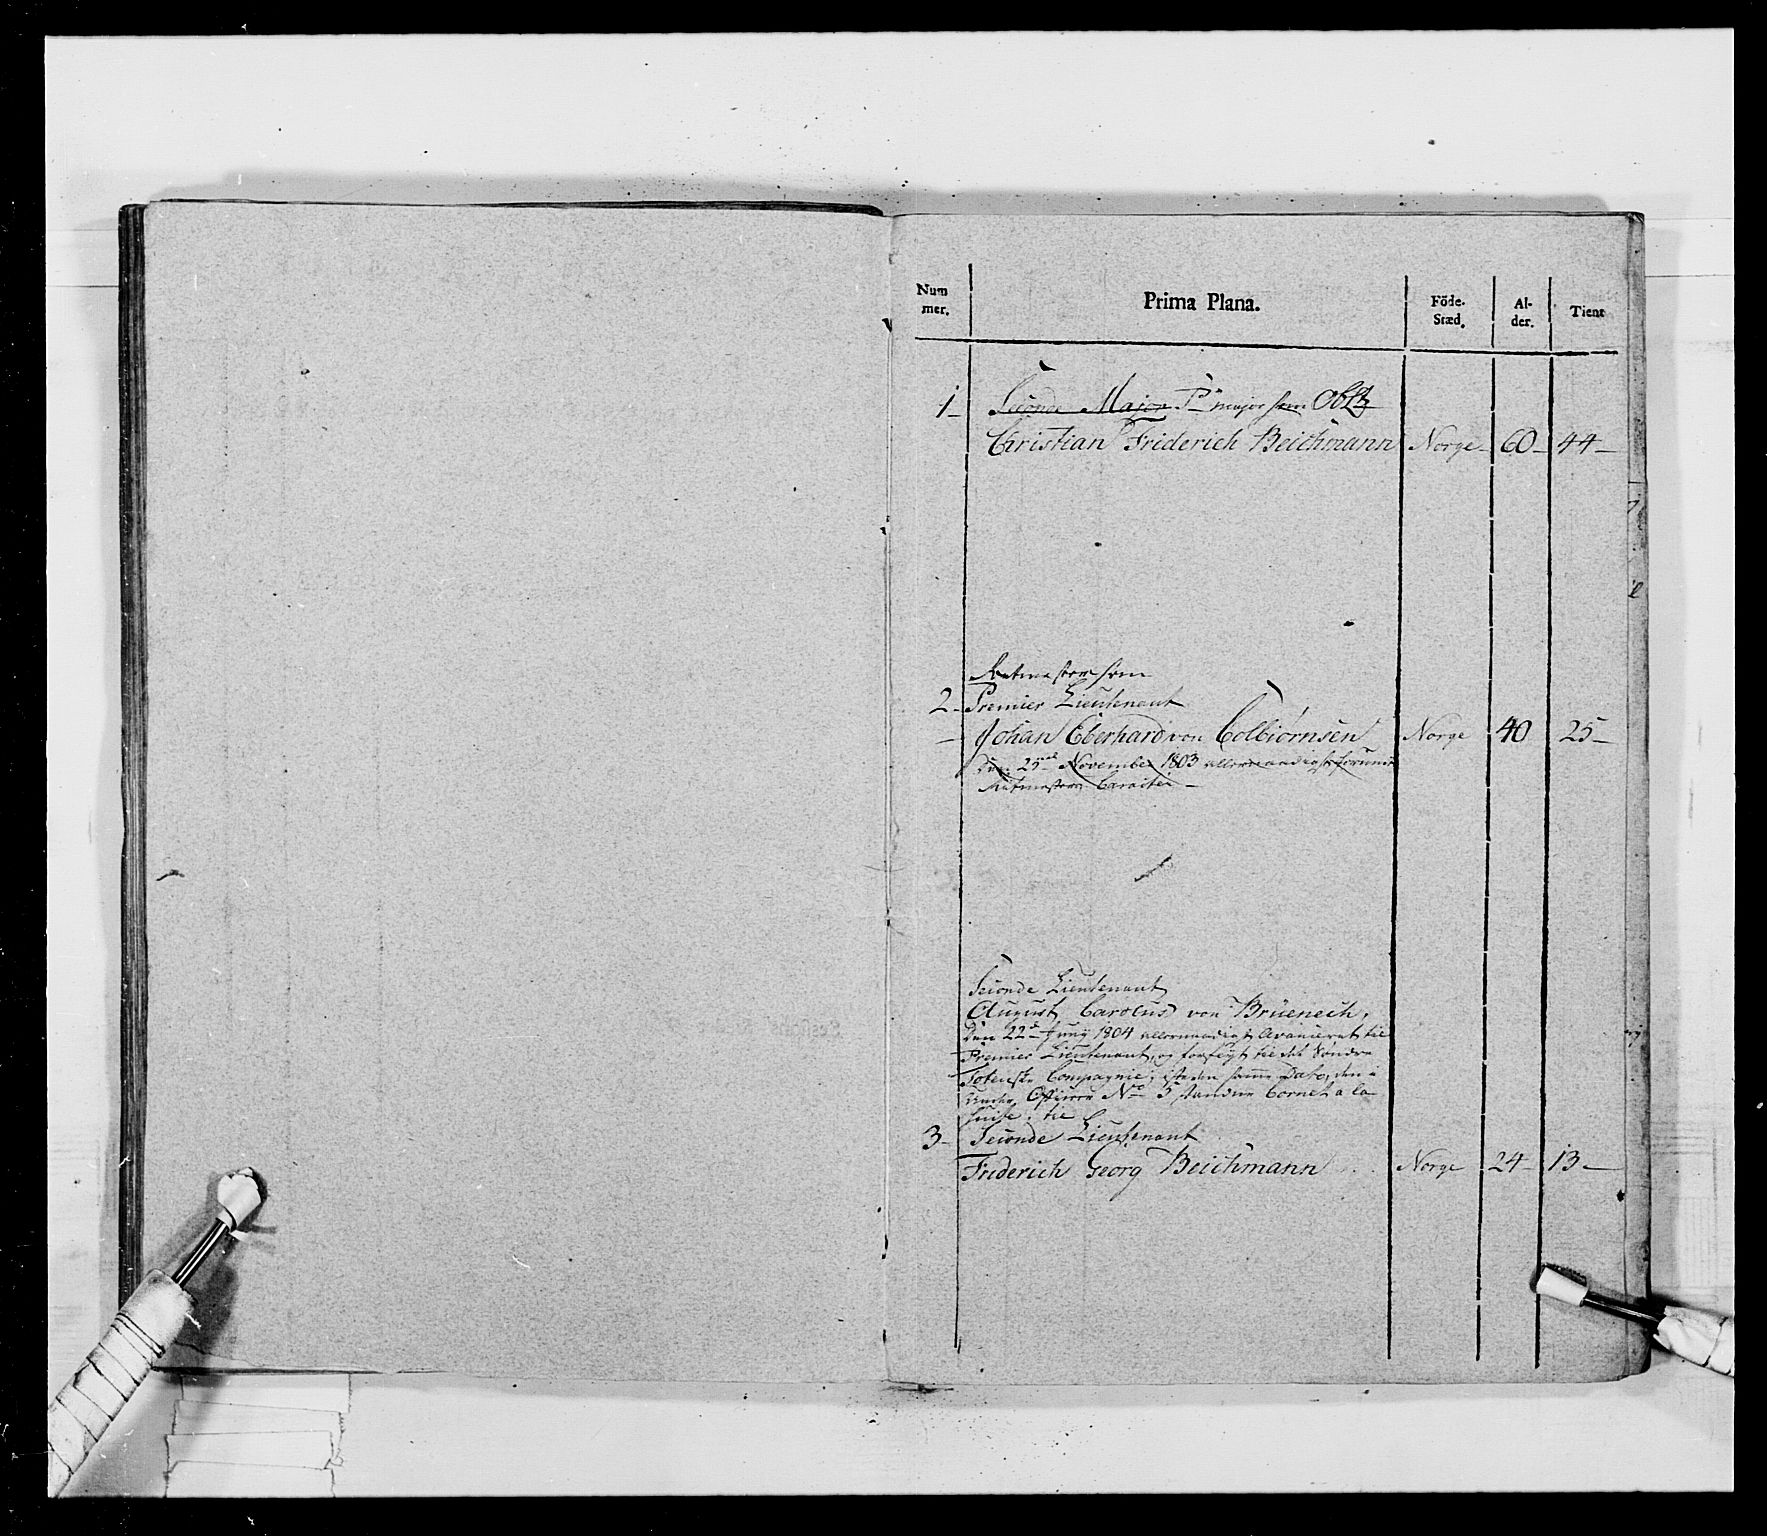 Num mer. Prima Plana. Föde- Stæd. Al- der. Tient
1- Seconde Major Pr major som Obltz
Christian Friderich Beichmann Norge- 60- 44-
Ritmester som
2- Premier Lieutenant
- Johan Eberhard von Colbiørnsen Norge 40 25-
Den 25de November 1803 allernaadigst forundt
Ritmesters Caracter -
Seconde Lieutenant
August Carolus von Brüenech,
Den 22d Juny 1804 allernaadigst Avanceret til
Premier Lieutenant, og forflyt til det Søndre
Totenske Compagnie; isteden samme Dato, den i
Under Officers No 5 standne Cornet a la
suite, til
3- Seconde Lieutenant
Friderich Georg Beichmann Norge 24- 13-